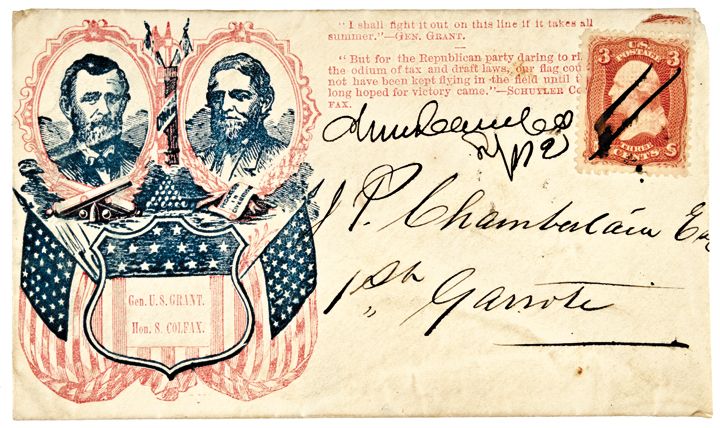 " I shall fight it out on this line if it takes all
summer."—GEN. GRANT.
" But for the Republican party daring to
the odium of tax and draft laws, our flag
not have been kept flying in the field until
long hoped for victory came."—SCHUYLER
FAX.
U.S. POSTAGE
3 3
THREE
CENTS
J P. Chamberlain
1st Garrote
Gen. U. S. GRANT.
Hon. S. COLFAX.